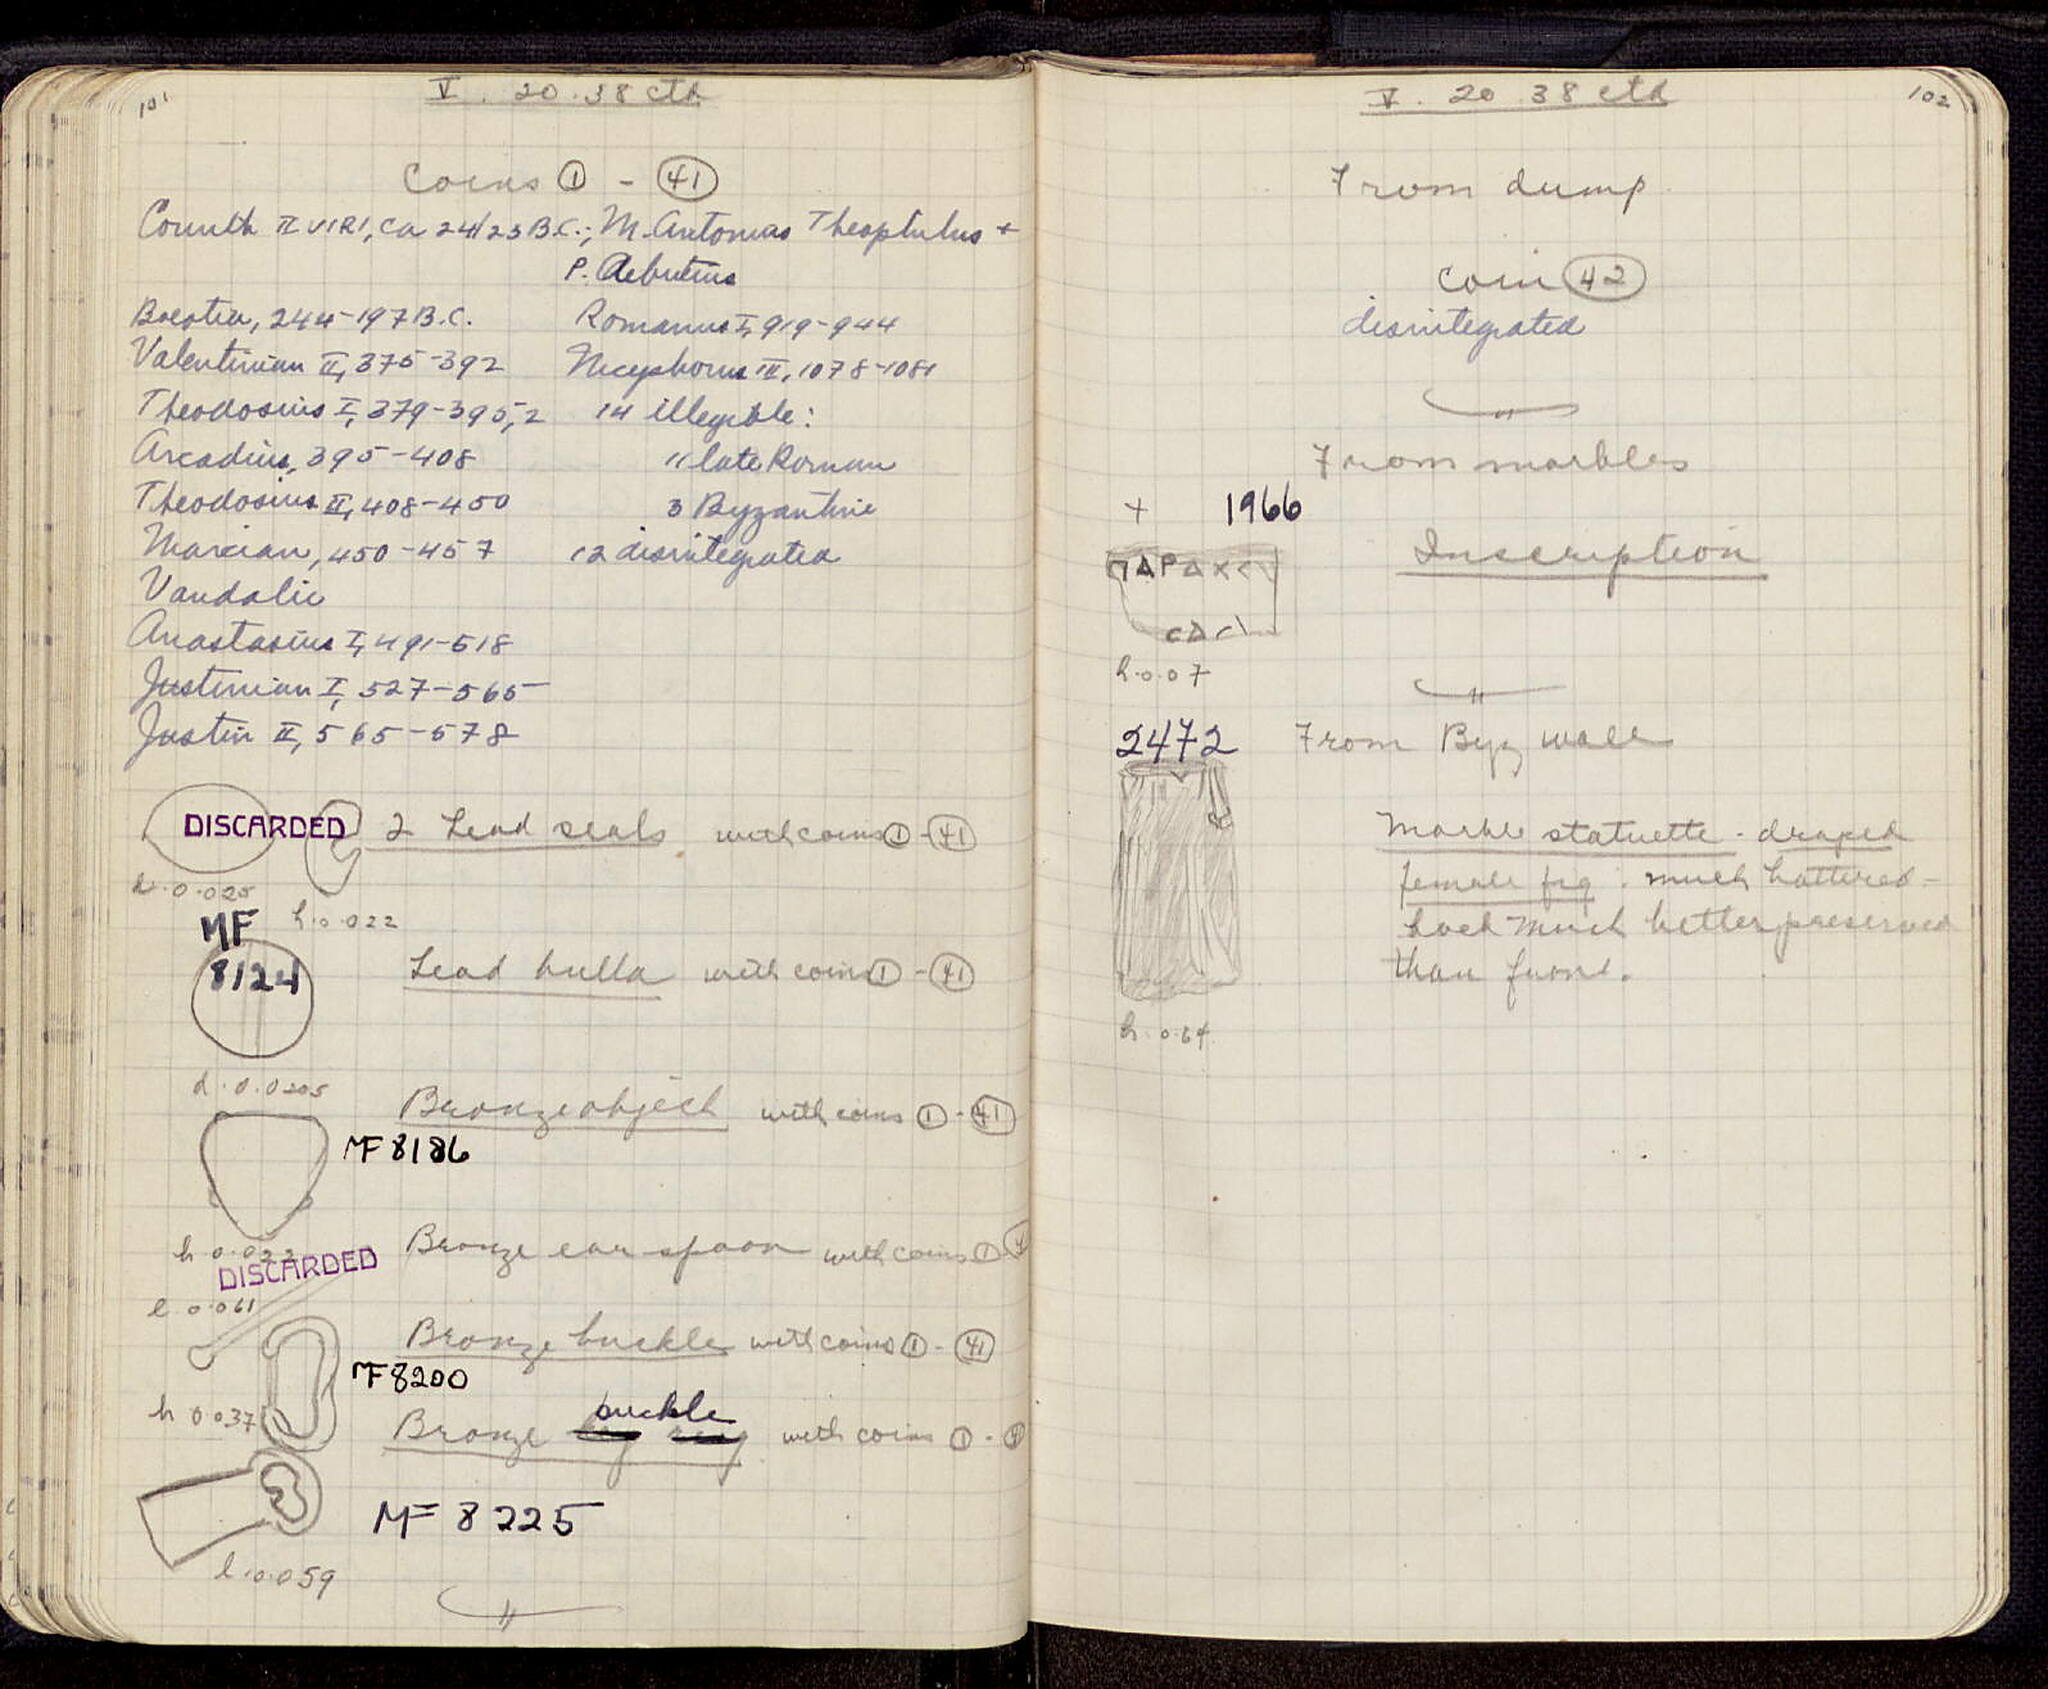 101
V. 20. 38 ctd
Coins ① - ㊶
Corinth II VIRI, ca 24/23 B.C.; M. Antonius Theophilus +
P. Aebutius
Boeotia, 244-197 B.C.
Valentinian II, 375-392
Theodosius I, 379-395, 2
Arcadius, 395-408
Theodosius II, 408-450
Marcian, 450-457
Vandalic
Anastasius I, 491-518
Justinian I, 527-565
Justin II, 565-578
Romanus I, 919-944
Nicephorus III, 1078-1081
14 illegible:
11 late Roman
3 Byzantine
12 disintegrated
DISCARDED 2 Lead seals with coins ① - ㊶
d. 0.025
h. 0.022
MF
8124
Lead bulla with coins ① - ㊶
d. 0.0205
Bronze object with coins ① - ㊶
MF 8186
h 0.022
DISCARDED
Bronze ear spoon with coins ① - 4
l 0.061
Bronze buckle with coins ① - ㊶
MF 8200
h 0.037
buckle
Bronze with coins ① - ㊶
MF 8225
l. 0.059
V. 20 38 ctd
102
From dump
coin ㊷
disintegrated
From marbles
+ 1966
Inscription
ΠΑΡΑΧ<
<Δ<\
h. 0.07
2472 From Byz wall
Marble statuette - draped
female fig. much battered -
back much better preserved
than front.
h. 0.64